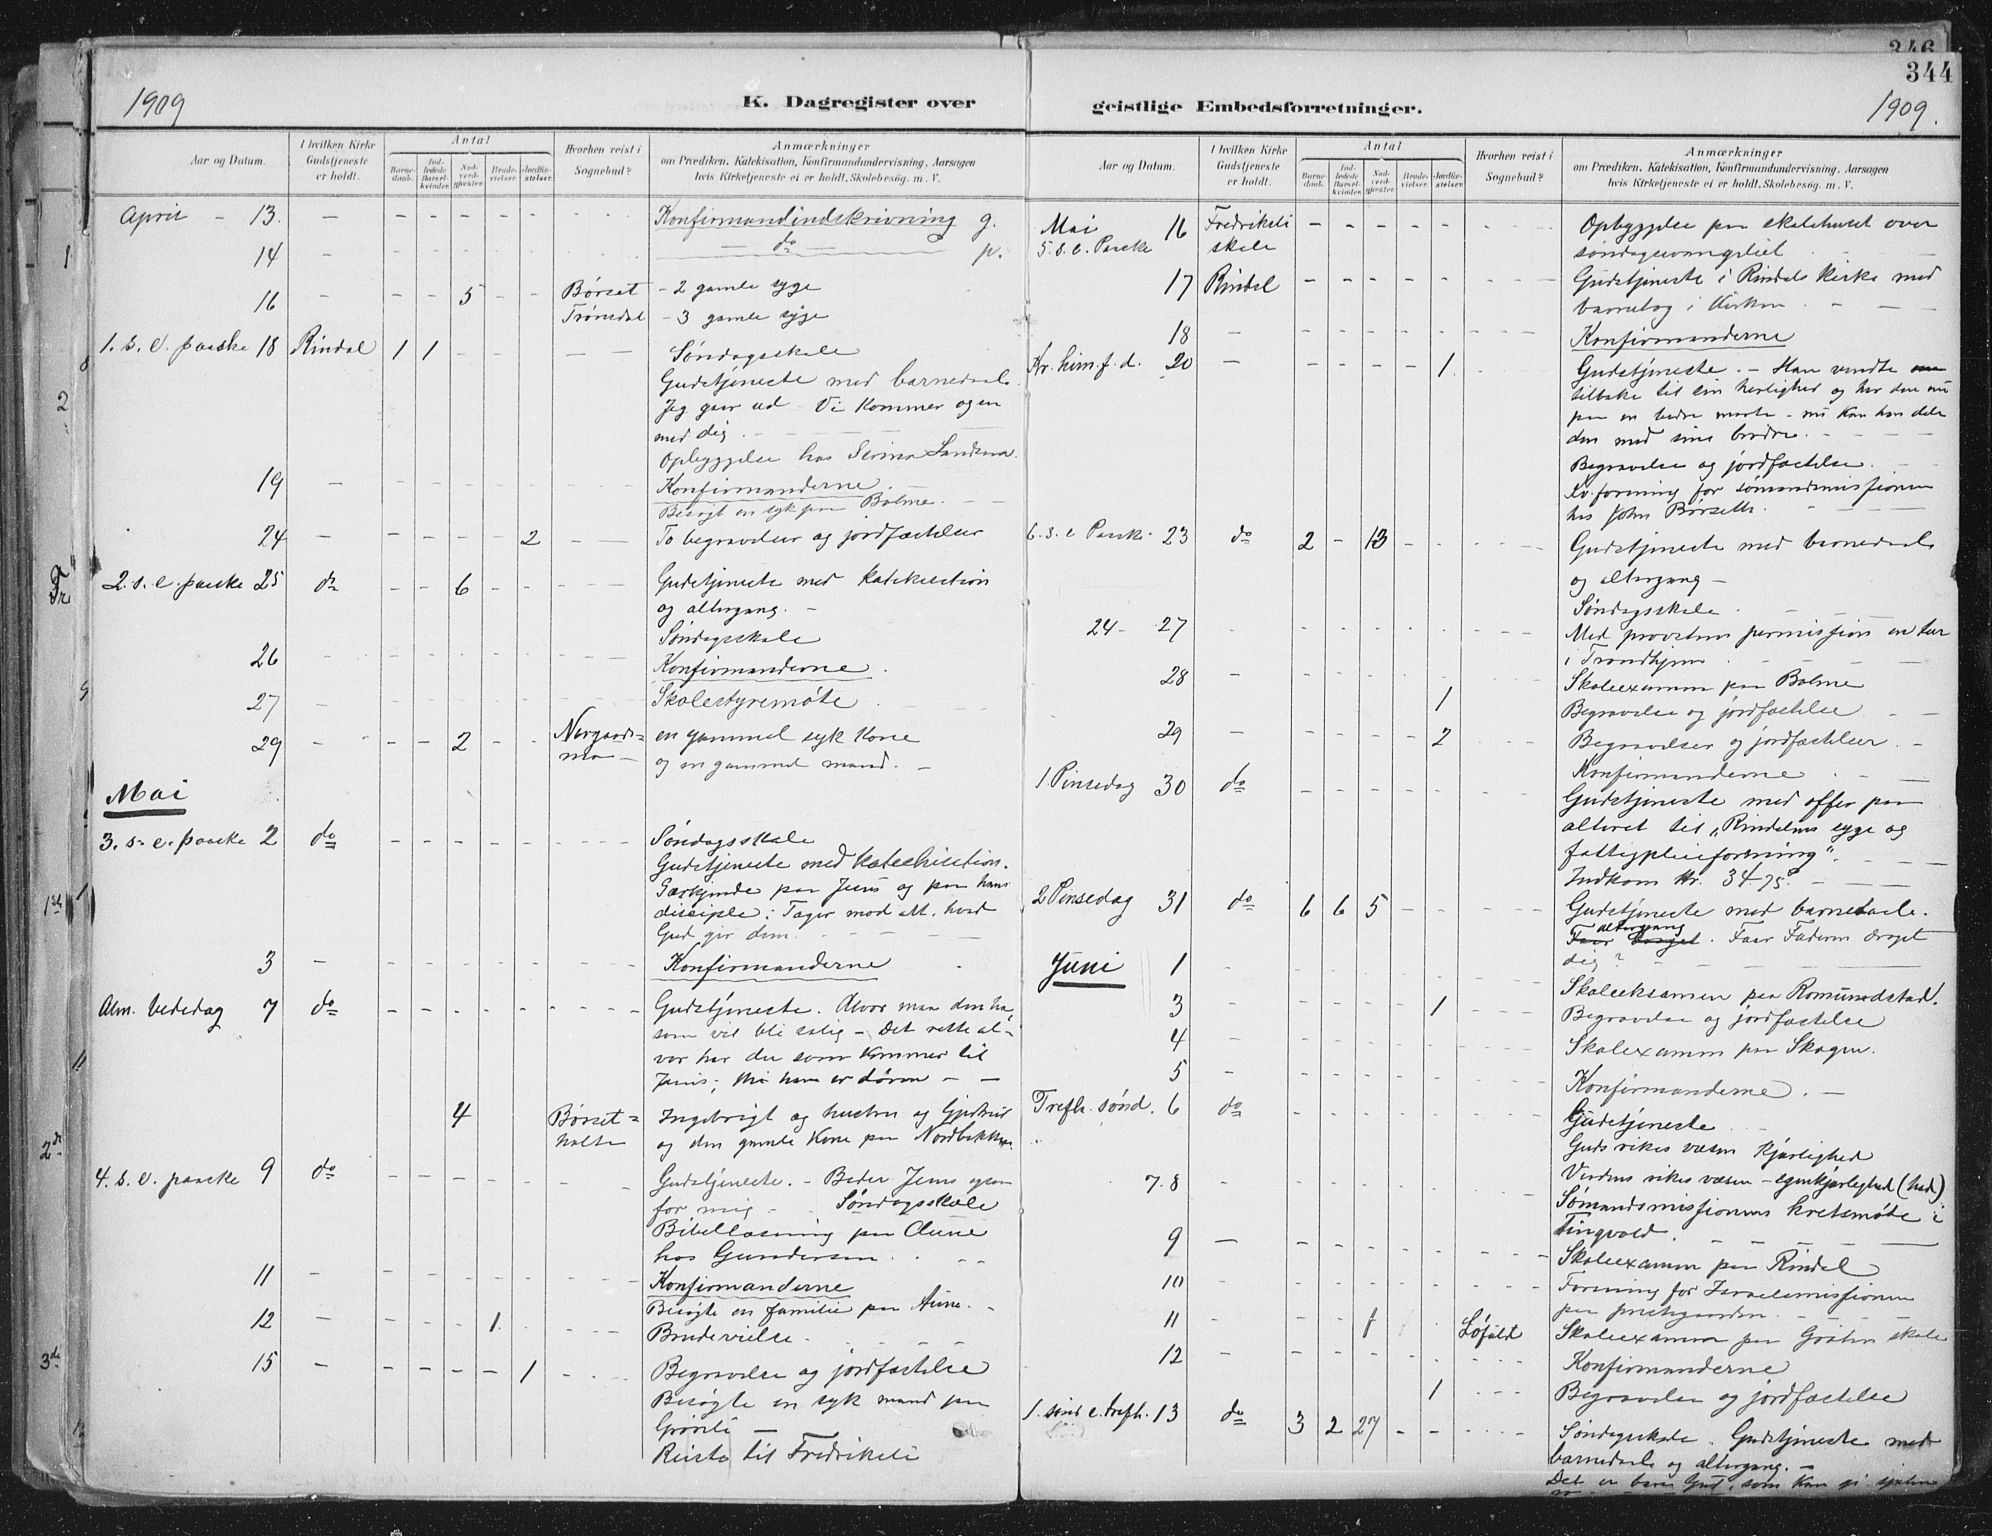 346
344
1909
K. Dagregister over
geistlige Embedsforretninger.
1909.
Aar og Datum.
I hvilken Kirke Gudstjeneste er holdt.
Antal
Barnedaab.
Indledede Barselkvinder.
Nadverdgjester.
Brudevielser.
Jordfæstelser.
Hvorhen reist i Sognebud?
Anmærkninger
om Prædiken, Katekisation, Konfirmandundervisning, Aarsagen
hvis Kirketjeneste ei er holdt, Skolebesøg. m. V.
April - 13. - Konfirmandindskrivning g.
14 - do p.
16 - 5 Børset - 2 gamle syge
Trønsdal - 3 gamle syge
1. s. e. paaske 18 Rindal 1 1 Søndagsskole
Gudstjeneste med barnedaab.
Jeg gaar ud - Vi kommer ogsaa
med dig.
Opbyggelse hos Serina Landsem.
19 - Konfirmanderne
Besøgt en syk paa Bolme.
24 - 2 To begravelser og jordfæstelser
2. s. e. paaske 25 do 6 Gudstjeneste med katekisation
og altergang. -
Søndagsskole
26 Konfirmanderne.
27 - Skolestyremøte
29 - 2 Norgaards= en gammel syk kone
mo - og en gammel mand. -
Mai
3. s. e. paaske 2 do Søndagsskole
Gudstjeneste med katechisation.
paa Jesus og paa hans
disciple: Tager mod alt, hvad
Gud gir dem.
3 - Konfirmanderne
Alm. bededag 7 do Gudstjeneste. Alvor maa den ha,
som vil bli salig - Det rette al-
vor har du som kommer til
Jesus; thi han er døren - -
4 Børset= Ingebrigt og hustru og Gjertrud
holte og den gamle kone paa Nordbekken.
4. s. e. paaske 9 do Gudstjeneste. - Beder Jesus ogsaa
for mig - Søndagsskole
Bibellæsning paa Aune
hos Gundersen
11 - Konfirmanderne
Besøgte en familie paa Aune. -
12 - 1 Brudevielse.
15 - 1 Begravelse og jordfæstelse
Besøgte en syk mand paa
Grønli -
Reiste til Fredrikeli
Aar og Datum.
I hvilken Kirke Gudstjeneste er holdt.
Antal
Barnedaab.
Indledede Barselkvinder.
Nadverdgjester.
Brudevielser.
Jordfæstelser.
Hvorhen reist i Sognebud?
Anmærkninger
om Prædiken, Katekisation, Konfirmandundervisning, Aarsagen
hvis Kirketjeneste ei er holdt, Skolebesøg. m. V.
Mai 16 Fredrikeli Opbyggelse paa skolehuset over
5. s. e. Paaske skole søndagsevangeliet
17 Rindal Gudstjeneste i Rindals kirke med
barnetog i kirken
18 - Konfirmanderne
Kr. him. f. d. 20 - 1 Gudstjeneste. - Han vendte
tilbake til sin herlighed og har den nu
paa en bedre maate - nu kan han dele
den med sine brødre.
Begravelse og jordfæstelse.
Kv. forening for sømandsmissionen
hos John Børseth.
6. s. e Paaske 23 do 2 - 13 Gudstjeneste med barnedaab
og altergang -
Søndagsskole
24 - 27 Med provstens permission en tur
i Trondhjem
28 - Skoleexamen paa Bolme
1 Begravelse og jordfæstelse
29 - 2 Begravelser og jordfæstelser. -
Konfirmanderne
1 Pinsedag 30 do Gudstjeneste med offer paa
alteret til "Rindalens syge og
fattigpleieforening".
Indkom kr. 34.75.
2 Pinsedag 31 do 6 6 5 Gudstjeneste med barnedaab.
altergang
Faar draget. Faar Faderen draget
dig?
Juni 1 - Skoleeksamen paa Romundstad.
3 - 1 Begravelse og jordfæstelse
4 - Skoleexamen paa Skogen.
5 - Konfirmanderne. -
Trefh. sønd. 6 do Gudstjeneste
Guds rikes væsen kjærlighed
Verdens rikes væsen - egenkjærlighed (had).
7. 8 Sømandsmissionens kretsmøte i
Tingvold.
9 - Skoleexamen paa Rindal
10 Forening for Israelsmissionen
paa prestegaarden
11 1 Løfaldt Skoleexamen paa skole
12 - Konfirmanderne
1 Begravelse og jordfæstelse
1. sønd e. trefh. 13 do 3 2 27 Søndagsskole. Gudstjeneste med
barnedaab og altergang. -
Det er bare Gud, som kan gi sjælen
1
2
1ste
2de
3de